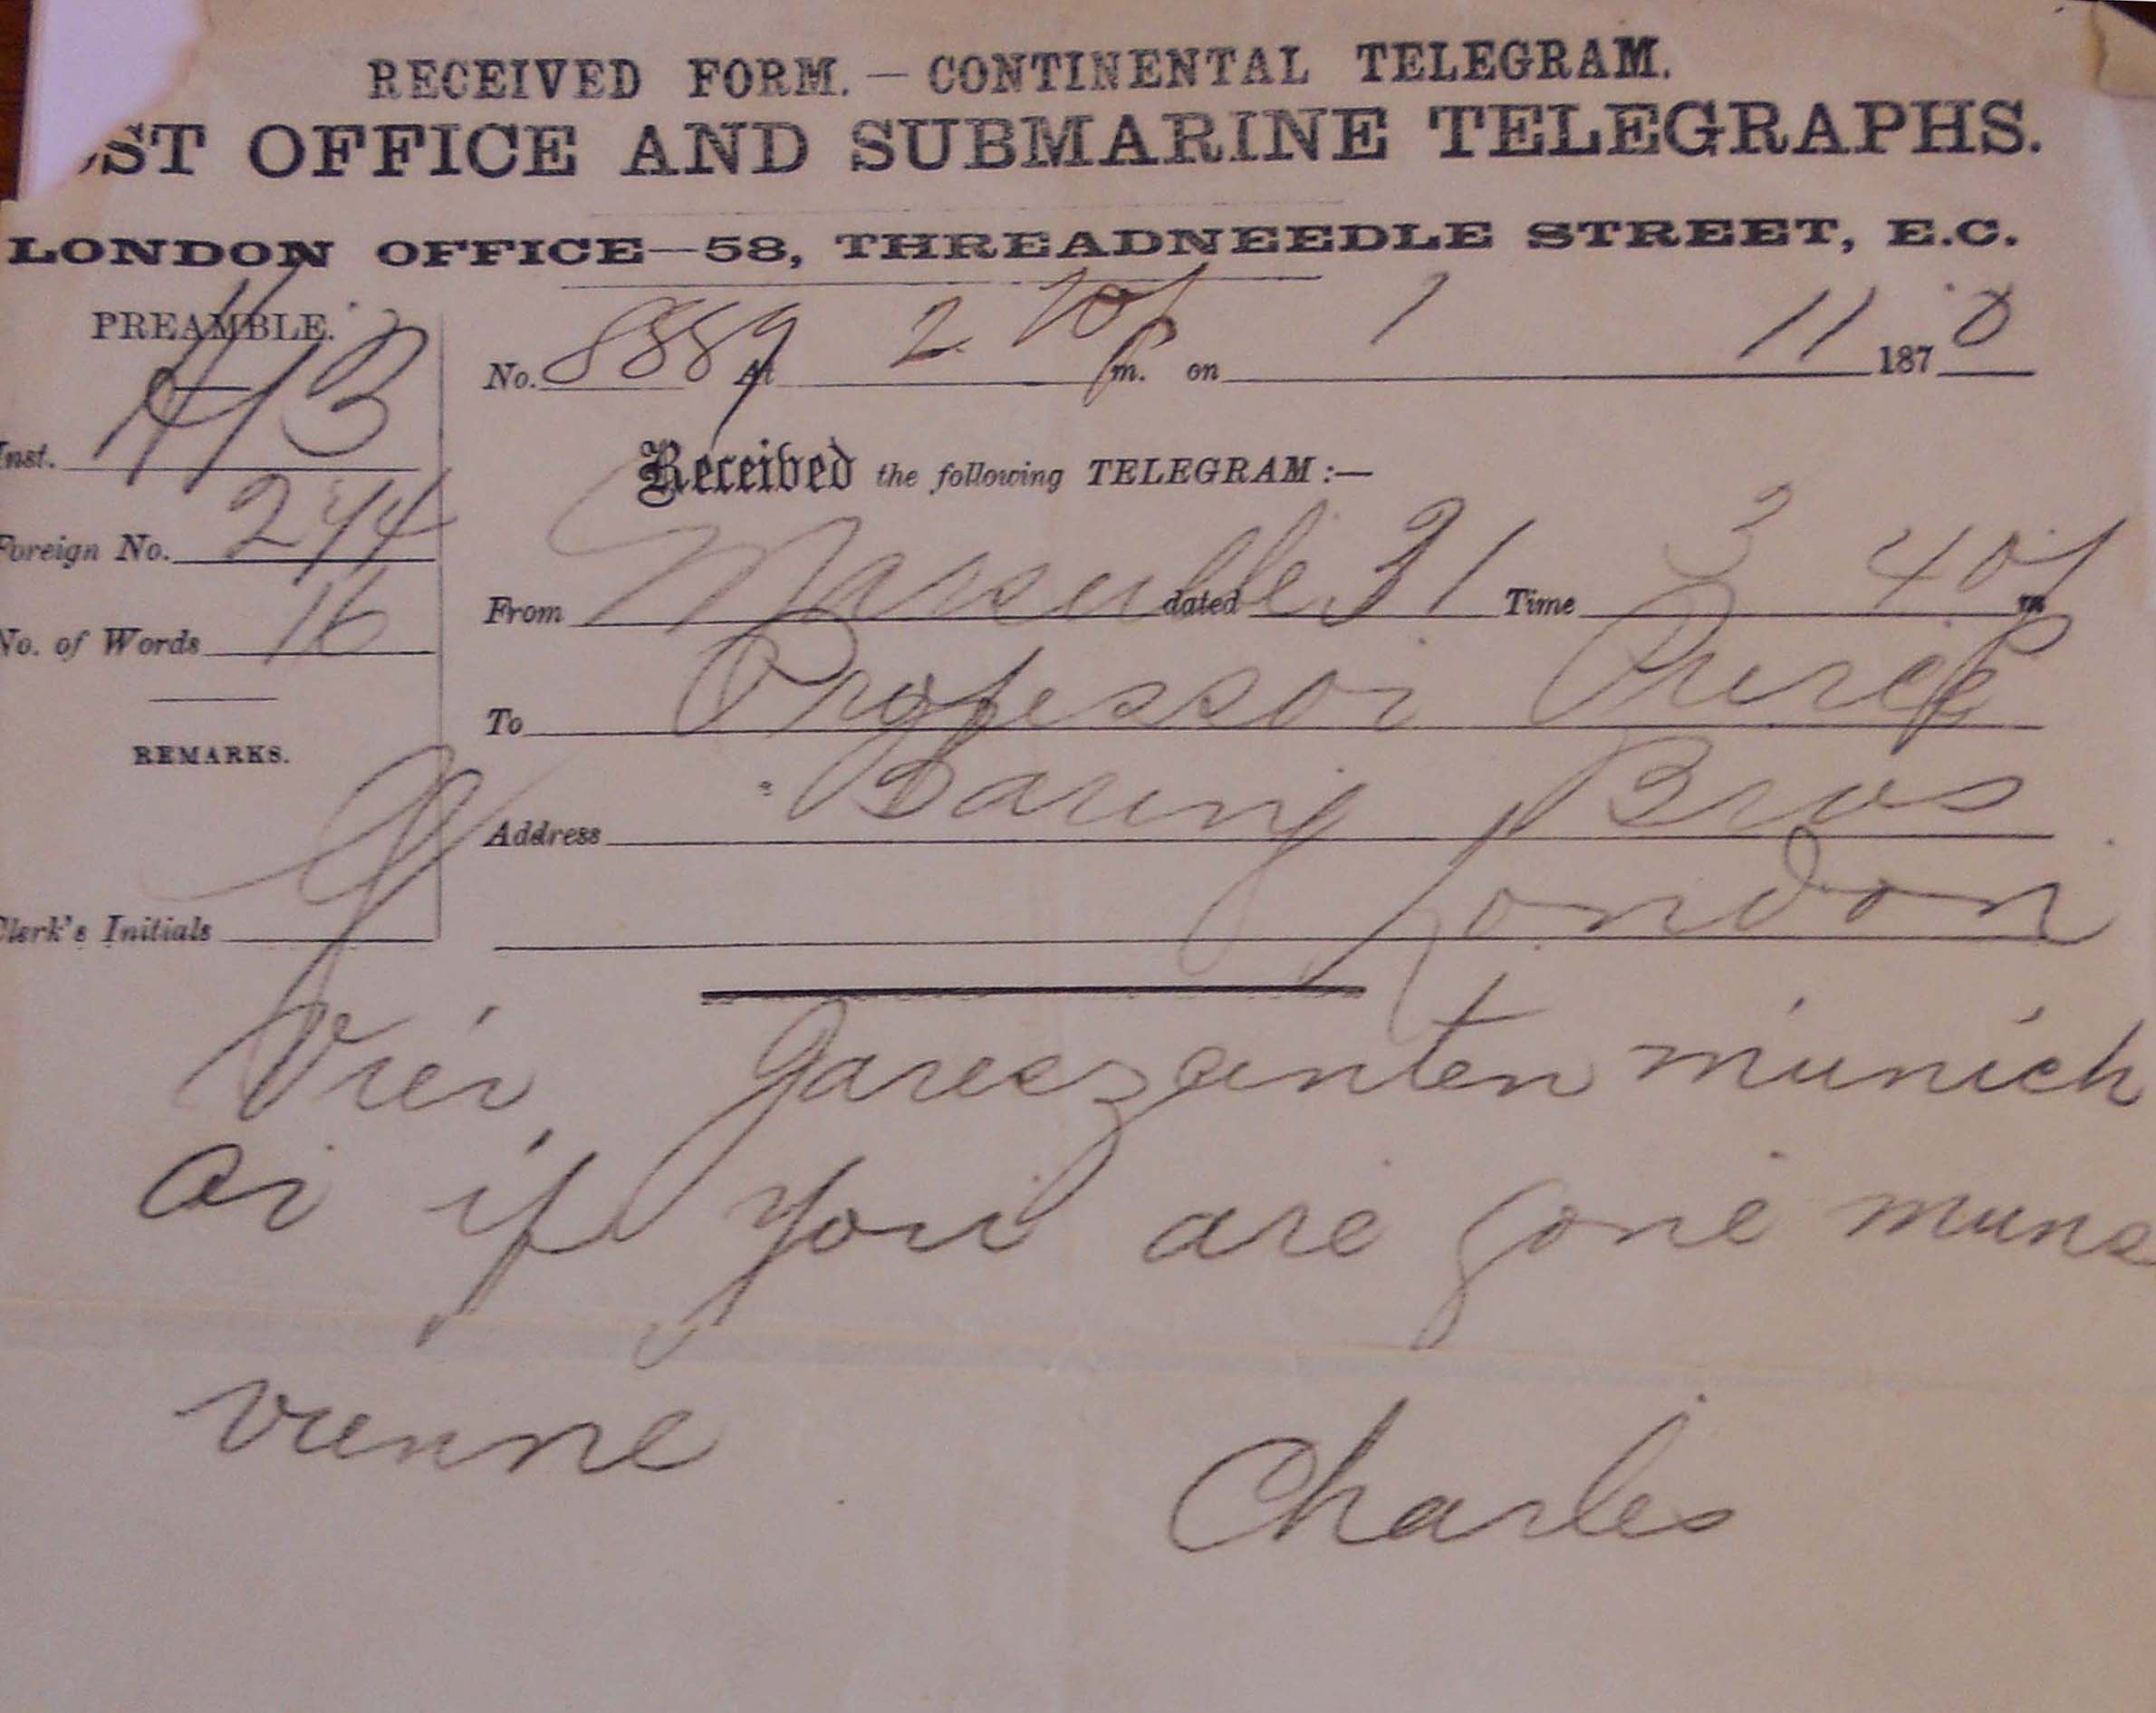 RECEIVED FORM. — CONTINENTAL TELEGRAM.
ST OFFICE AND SUBMARINE TELEGRAPHS.
LONDON OFFICE—58, THREADNEEDLE STREET, E.C.
PREAMBLE.
No. 8889 At 2 m. on 1 11 1870
Inst.
Received the following TELEGRAM :—
Foreign No. 244
From Marseille dated 31 Time 3 40 m
No. of Words 16
To Professor Peirce
REMARKS.
Address Baring Bros
London
Clerk's Initials
Vier Jareszeiten munich
or if you are gone
vienne
Charles